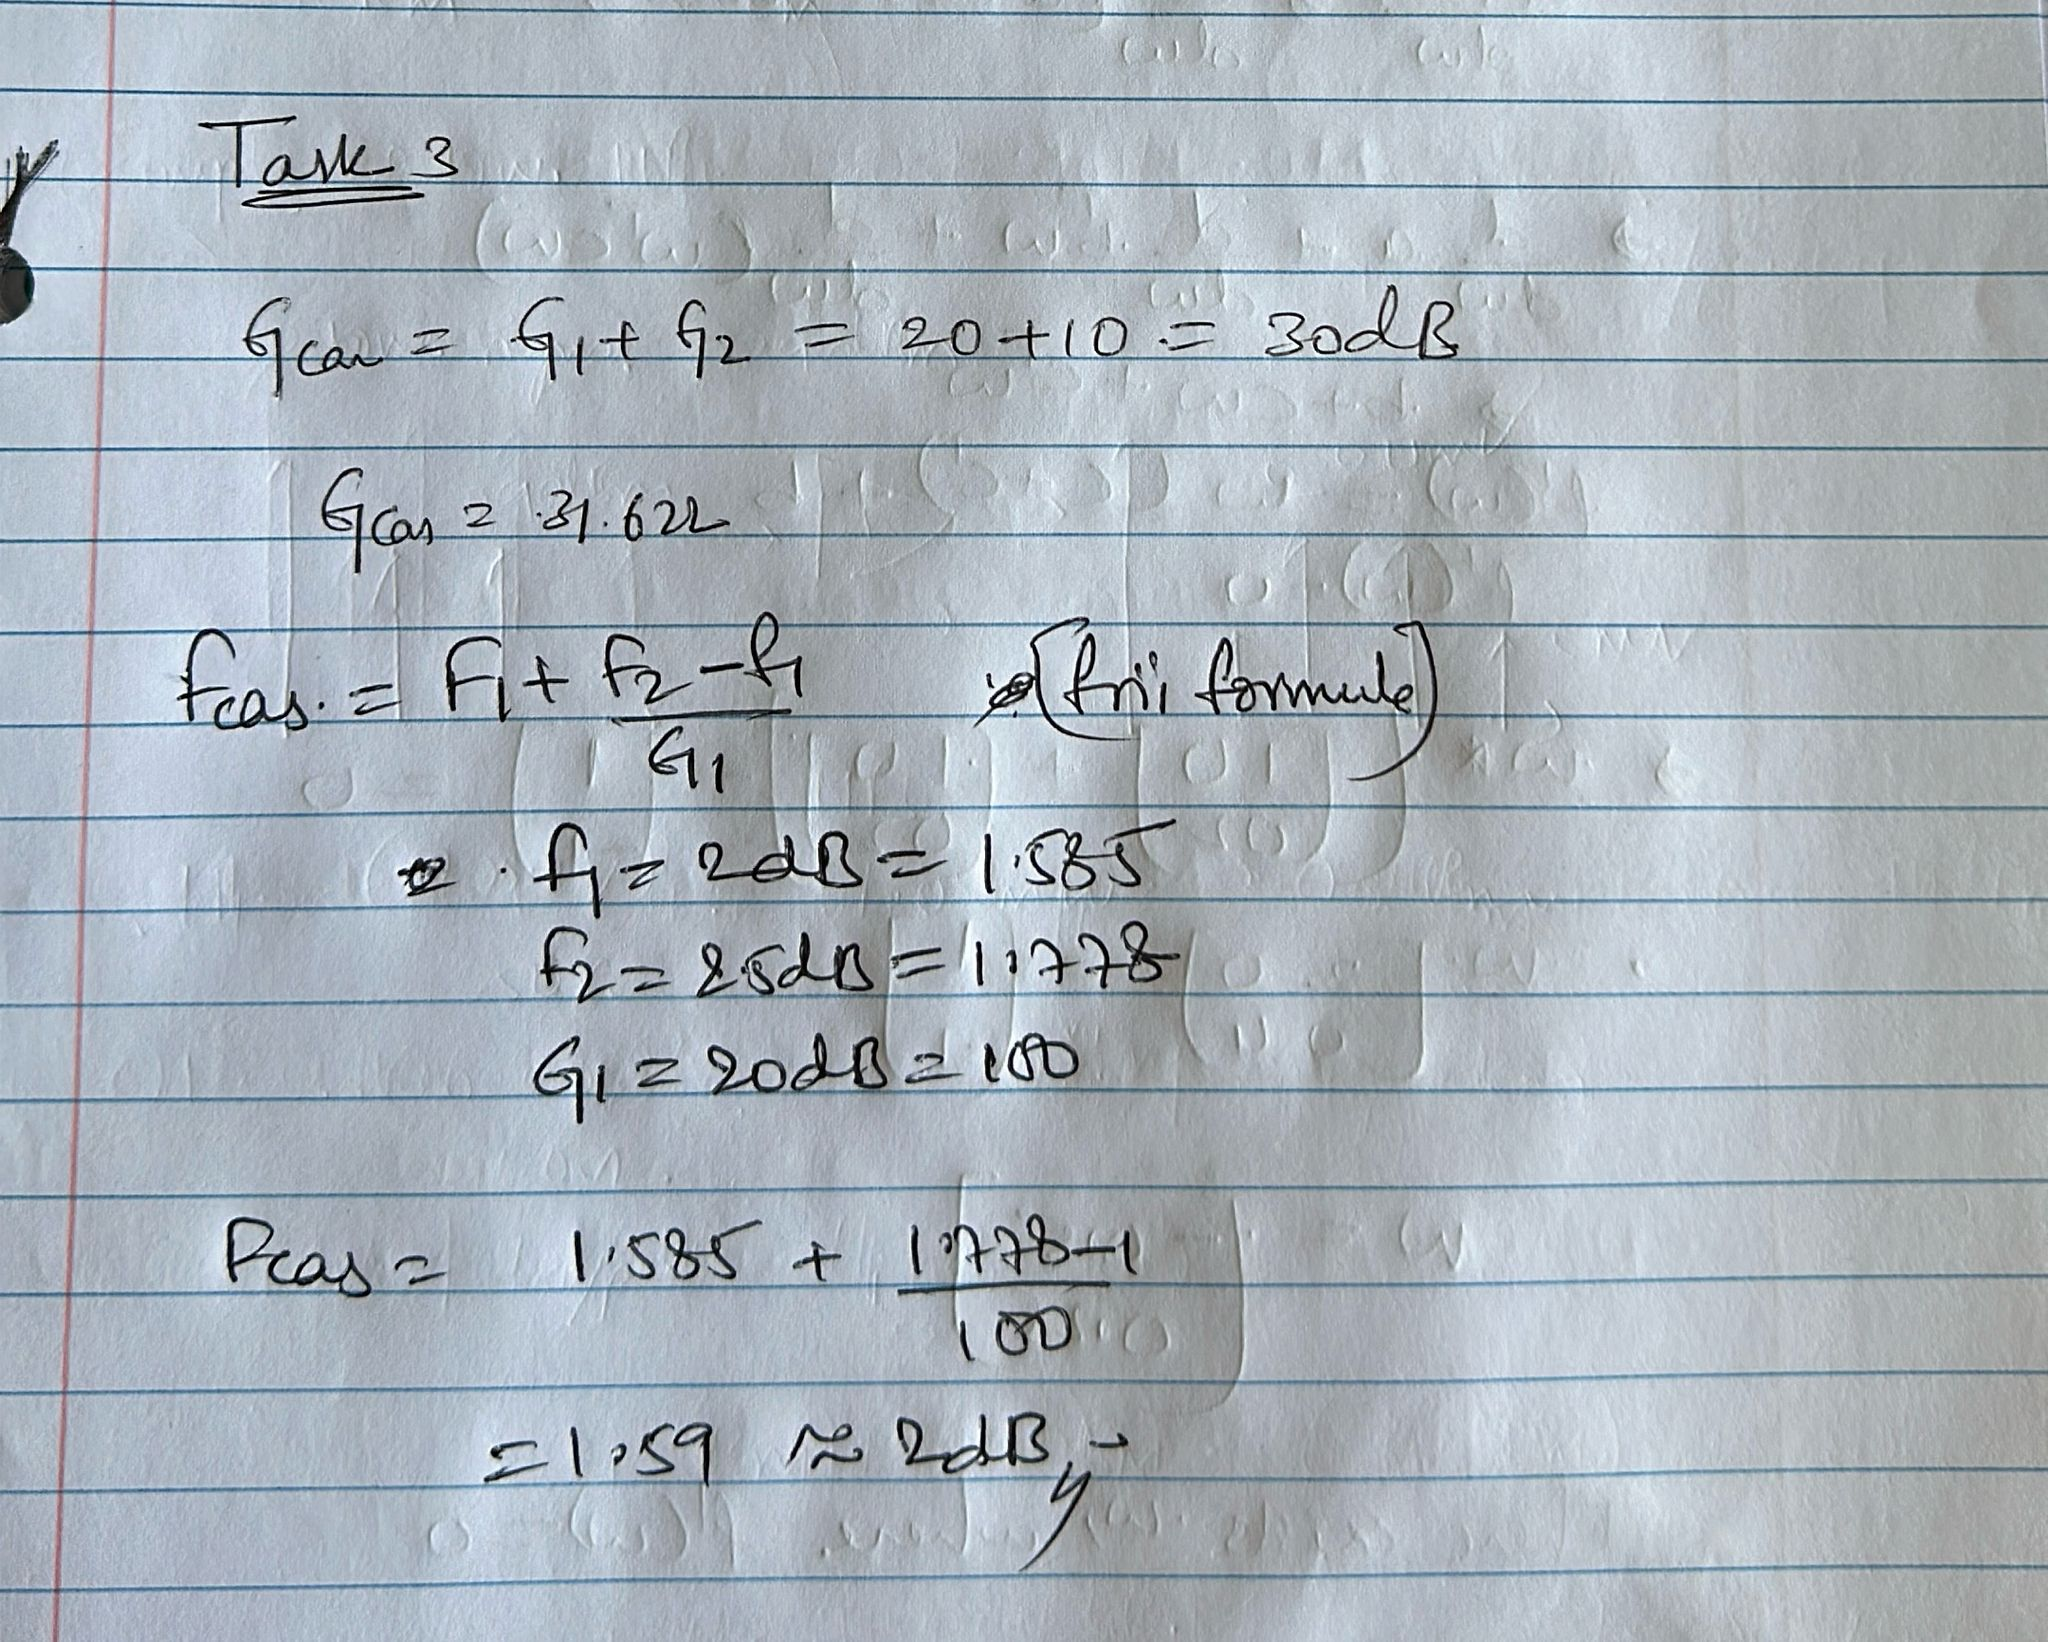 Task 3
Gcas = G1 + G2 = 20 + 10 = 30dB
Gcas = 31.622
Fcas. = F1 + F2 - f1 / G1 (frii formule)
f1 = 2dB = 1.585
F2 = 2.5dB = 1.778
G1 = 20dB = 100
Fcas = 1.585 + 1.778-1 / 100
= 1.59 ≈ 2dB